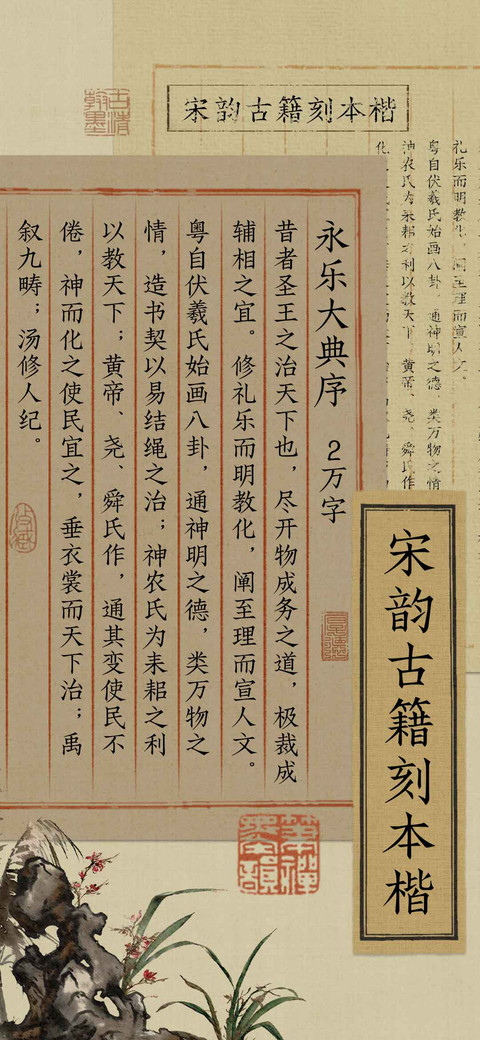 宋韵古籍刻本楷
礼乐而明教化，阐至理而宣人文。
粤自伏羲氏始画八卦，通神明之德，类万物之情
神农氏为耒耜之利以教天下；黄帝、尧、舜氏作
永乐大典序 2万字
昔者圣王之治天下也，尽开物成务之道，极裁成
辅相之宜。修礼乐而明教化，阐至理而宣人文。
粤自伏羲氏始画八卦，通神明之德，类万物之
情，造书契以易结绳之治；神农氏为耒耜之利
以教天下；黄帝、尧、舜氏作，通其变使民不
倦，神而化之使民宜之，垂衣裳而天下治；禹
叙九畴；汤修人纪。
宋韵古籍刻本楷